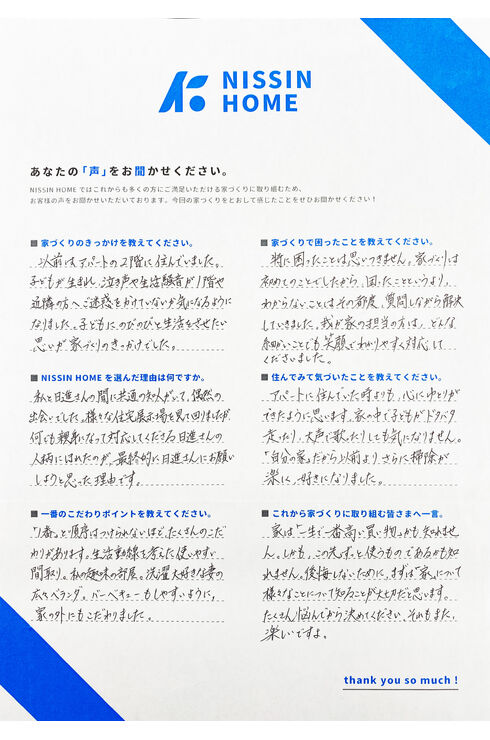 NISSIN
HOME
あなたの「声」をお聞かせください。
NISSIN HOME ではこれからも多くの方にご満足いただける家づくりに取り組むため、
お客様の声をお聞かせいただいております。今回の家づくりをとおして感じたことをぜひお聞かせください！
■ 家づくりのきっかけを教えてください。
以前はアパートの2階に住んでいました。
子どもが生まれ、泣き声や生活騒音が1階や
近隣の方へご迷惑をかけていないか気になるように
なりました。子どもにのびのびと生活をさせたい
思いが家づくりのきっかけでした。
■ NISSIN HOME を選んだ理由は何ですか。
私と日進さんの間に共通の知人がいて、偶然の
出会いでした。様々な住宅展示場を見て回りましたが、
何でも親身になって対応してくださる日進さんの
人柄にほれたのが、最終的に日進さんにお願い
しようと思った理由です。
■ 一番のこだわりポイントを教えてください。
「1番」と順序はつけられないほど、たくさんのこだ
わりがあります。生活動線も考えた使いやすい
間取り。私の趣味の部屋。洗濯大好きな妻の
広いベランダ。バーベキューもしやすいように、
家の外にもこだわりました。
■ 家づくりで困ったことを教えてください。
特に困ったことは思いつきません。家づくりは
初めてのことでしたから、困ったことというより、
わからないことはその都度、質問しながら解決
していきました。我が家の担当の方は、どんな
細かいことでも笑顔でわかりやすく対応して
くださいました。
■ 住んでみて気づいたことを教えてください。
アパートに住んでいた時よりも、心にゆとりが
できたように思います。家の中で子どもがドタバタ
走ったり、大声で歌ったりしても気になりません。
「自分の家」だから以前より、さらに掃除が
楽しく、好きになりました。
■ これから家づくりに取り組む皆さまへ一言。
家は「一生で一番高い買い物」かも知れませ
ん。しかも、この先ずっと使うものであるかも知
れません。後悔しないために、まずは「家」について
様々なことについて知ることが大切だと思います。
たくさん悩んでから決めてください。それもまた、
楽しいですよ。
thank you so much !